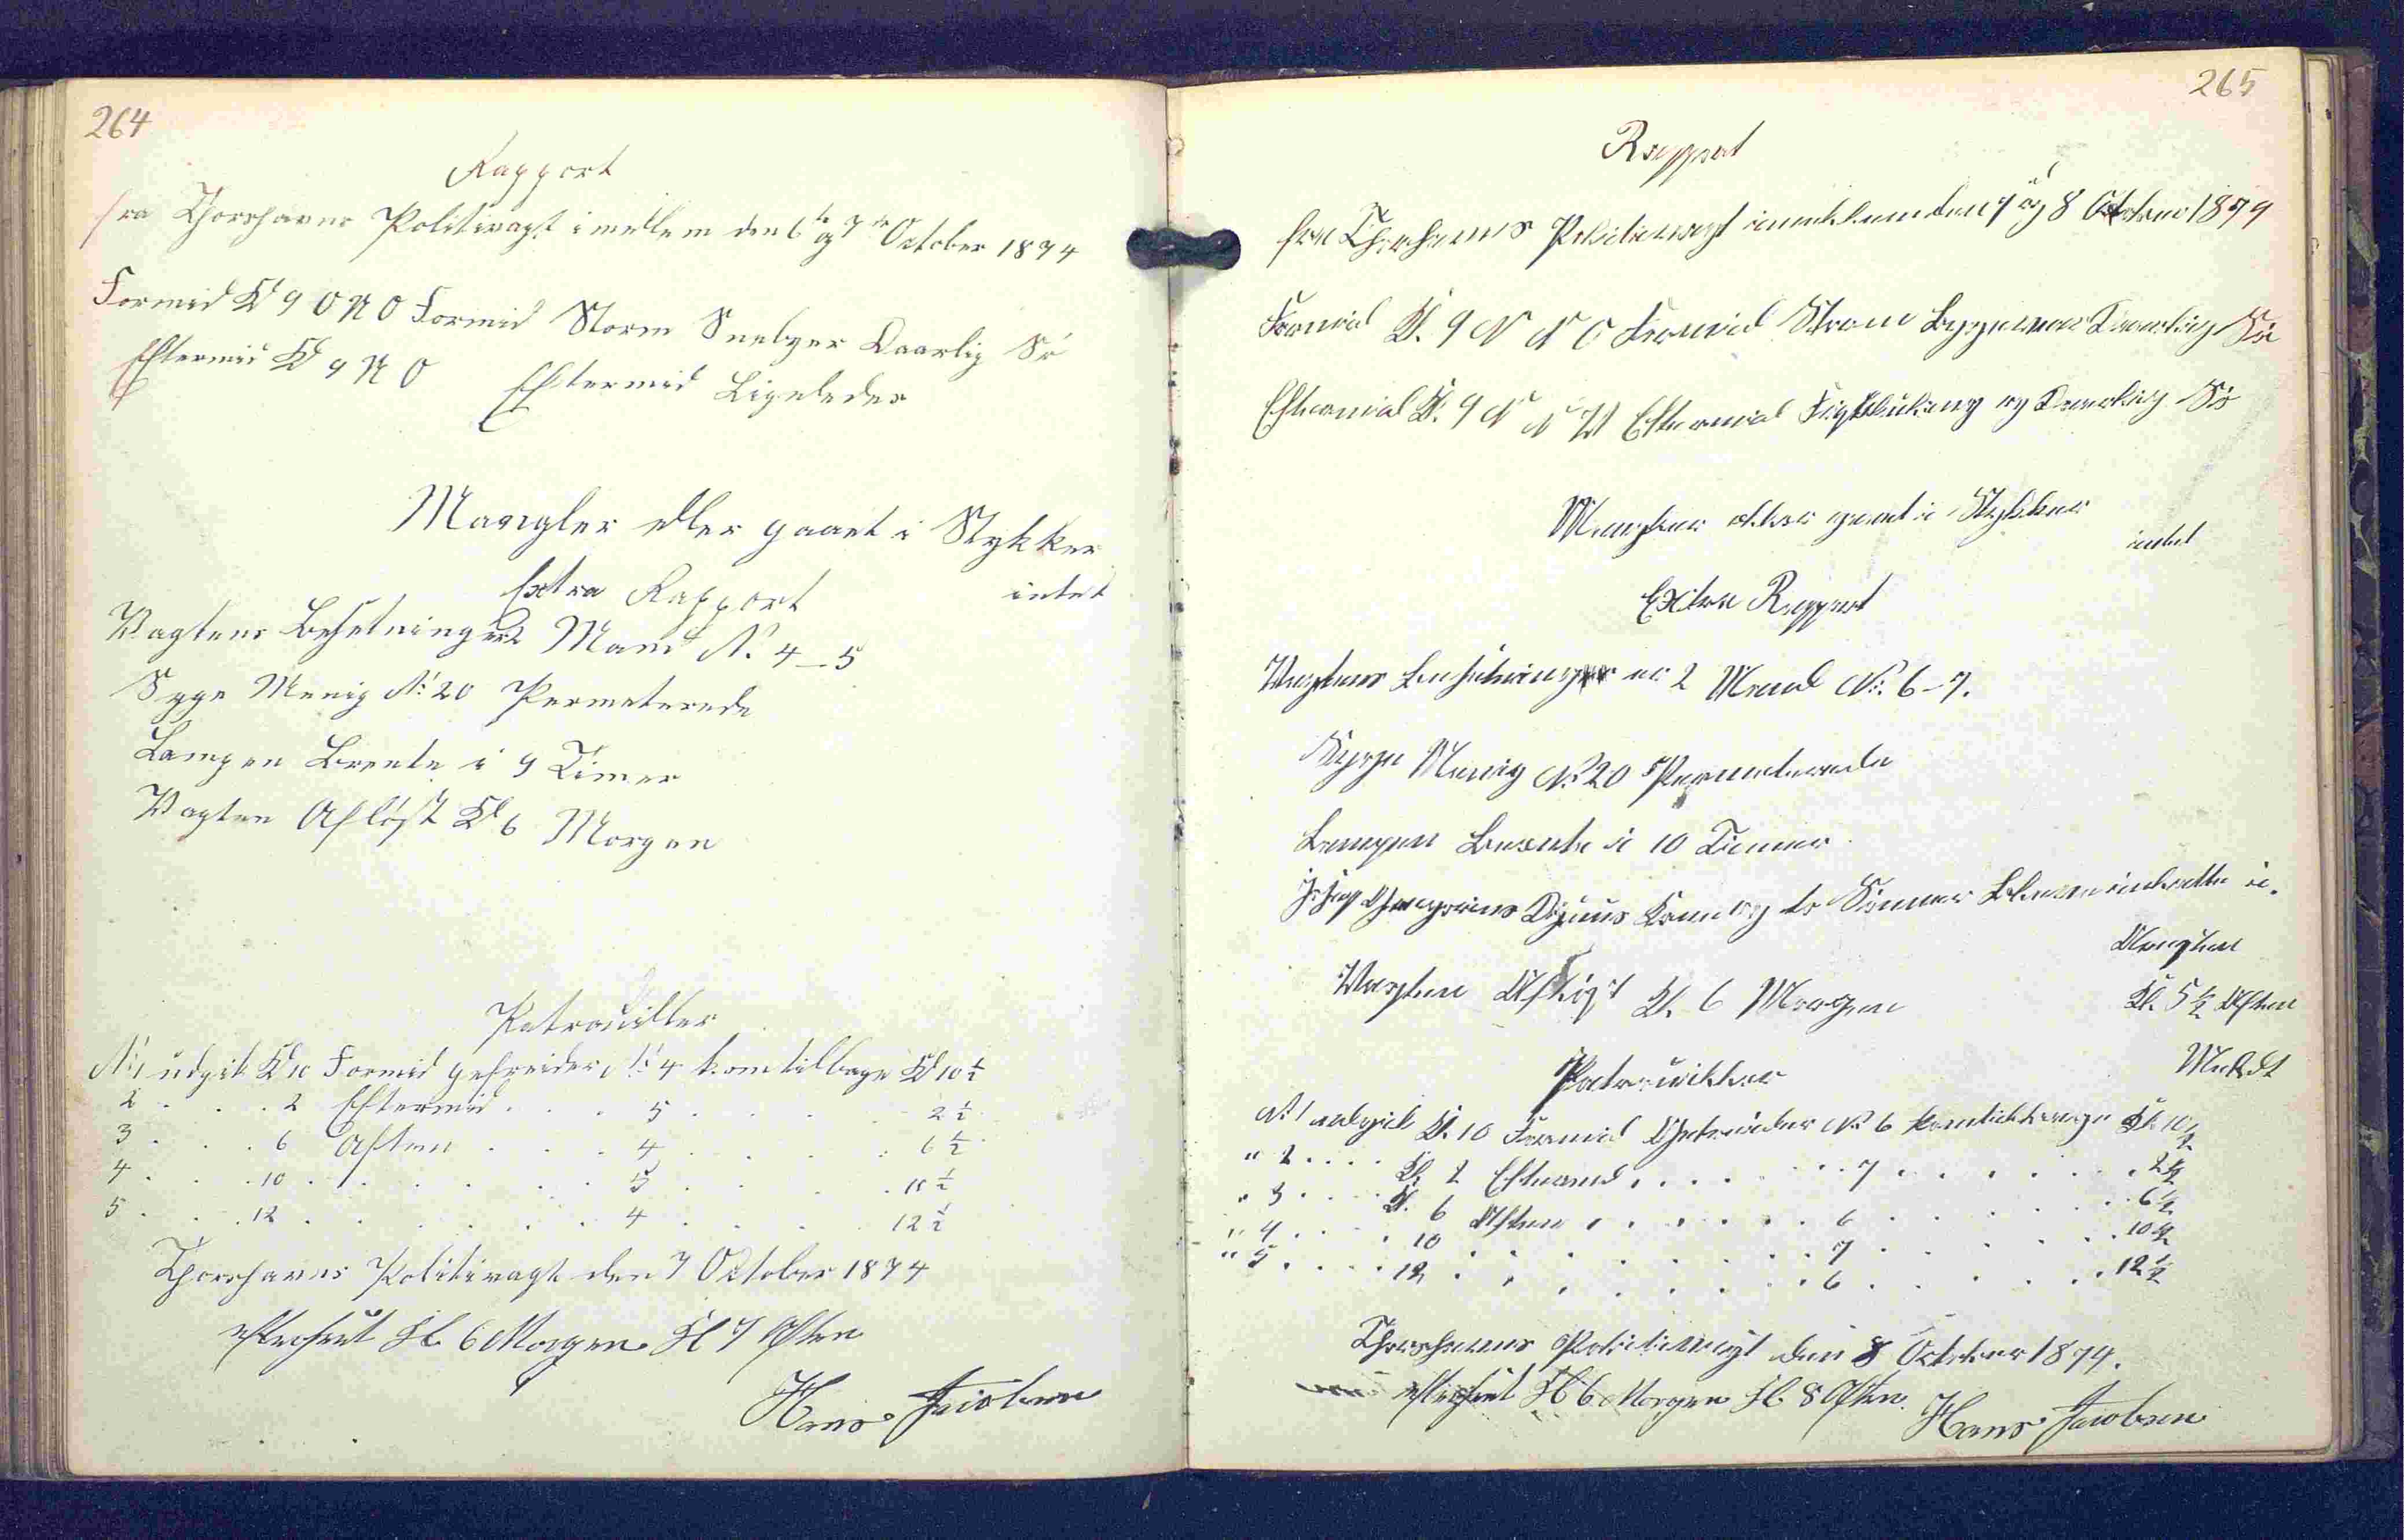 264
Rapport
fra Thorshavns Politivagt imellem den 6te og 7de October 1874
Formid Kl 9 O N O Formid Storm Sneebyer Daarlig Sö
Eftermid Kl 9 N O Eftermid Ligeledes
Mangler eller gaaet i Stykker
intet
Extra Rapport
Vagtens Besetninger 2 Mand No. 4-5
Syge Menig No. 20 Permeterede
Lampen Brente i 9 Timer
Vagten Aflöst Kl 6 Morgen
Patrouiller
No. 1 udgik Kl 10 Formid gefreider No. 4 kom tilbage Kl 10 ½
2 . . . 2 Eftermid . . . 5 . . . . 2 ½
3 . . . 6 Aften . . . 4 . . . . 6 ½
4 . . . 10 . . . . . . 5 . . . . 10 ½
5 . . . 12 . . . . . . 4 . . . . 12 ½
Thorshavns Politivagt den 7 October 1874
efterseet Kl. 6 Morgen Kl 7 Aften
Hans Jacobsen
265
Rapport
fra Thorshavns Politievagt immellem den 7 og 8 October 1874
Formid Kl. 9 N N O Formid Storm Daarlig Sö
Eftermid Kl. 9 N N W Eftermid og Daarlig Sö
Mangler eller gaaet i Stykker
intet
Extra Rapport
Vagtens Besetning er 2 Mand No. 6-7.
Syge Menig No. 20 Permeterede
Lampen Brente i 10 Timer
Kone og to Sönner Bleve indsatte i
Kl. 5 ½ Aften
Vagten Aflöst Kl. 6 Morgen
Patrouiller
No. 1 udgik Kl. 10 Formid Gefreider No. 6 kom tilbage Kl. 10 ½
" 2 . . . . Kl. 2 Eftermid . . . . . 7 . . . . . 2 ½
" 3 . . . . Kl. 6 Aften . . . . . . 6 . . . . . 6 ½
" 4 . . . . 10 . . . . . . . 7 . . . . . 10 ½
" 5 . . . . 12 . . . . . . . 6 . . . . . 12 ½
Thorshavns Politivagt den 8 October 1874.
efterseet Kl 6 Morgen Kl. 8 Aften. Hans Jacobsen